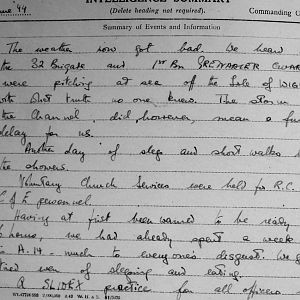 INTELLIGENCE SUMMARY
une 44
(Delete heading not required).
Commanding O
Summary of Events and Information
The weather now got bad. We heard
the 32 Brigade and 1st Bn GRENADIER GUAR
were pitching at sea off the Isle of WIG
with short truth no one knew. The storm
the Channel did, however, mean a fur
delay for us.
Another day of sleep and short walks b
the showers.
Voluntary Church Services were held for R.C.
C of E personnel.
Having at first been warned to be ready
hours, we had already spent a week
in A.14. much to everyone's disgust. We g
tired even of sleeping and eating.
A SLIDEX practice for all officers